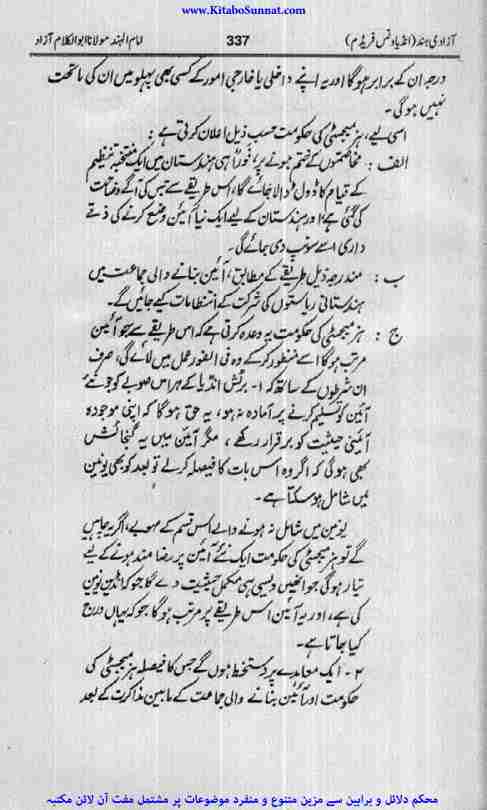 www.KitaboSunnat.com
آزادیٔ ہند (انڈیا ونس فریڈم) 337 امام الہند مولانا ابوالکلام آزاد
درجہ ان کے برابر ہوگا اور یہ اپنے داخلی یا خارجی امور کے کسی بھی پہلو میں ان کی ماتحت
نہیں ہوگی۔
اسی لیے، ہز میجسٹی کی حکومت حسب ذیل اعلان کرتی ہے :
الف : مخاصمتوں کے ختم ہونے پر، فوراً ہی ہندستان میں ایک منتخبہ تنظیم
کے قیام کا ڈول ڈالا جائے گا، اس طریقے سے جس کی آگے وضاحت
کی گئی ہے؛ اور ہندستان کے لیے ایک نیا آئین وضع کرنے کی ذمے
داری اسے سونپ دی جائے گی۔
ب : مندرجہ ذیل طریقے کے مطابق، آئین بنانے والی جماعت میں
ہندستانی ریاستوں کی شرکت کے انتظامات کیے جائیں گے۔
ج : ہز میجسٹی کی حکومت یہ وعدہ کرتی ہے کہ اس طریقے سے جو آئین
مرتب ہوگا اسے منظور کر کے وہ فی الفور عمل میں لائے گی، صرف
ان شرطوں کے ساتھ کہ ۱- برٹش انڈیا کے ہر اس صوبے کو جو نئے
آئین کو تسلیم کرنے پر آمادہ نہ ہو، یہ حق ہوگا کہ اپنی موجودہ
آئینی حیثیت کو برقرار رکھے، مگر آئین میں یہ گنجائش
بھی ہوگی کہ اگر وہ اس بات کا فیصلہ کر لے تو بعد کو بھی یونین
میں شامل ہو سکتا ہے۔
یونین میں شامل نہ ہونے والے اس قسم کے صوبے، اگر یہ چاہیں
گے تو ہز میجسٹی کی حکومت ایک نئے آئین پر رضا مند ہونے کے لیے
تیار ہوگی جو انھیں ویسی ہی مکمل حیثیت دے گا جو کہ انڈین یونین
کی ہے، اور یہ آئین اس طریقے پر مرتب ہوگا جو کہ یہاں درج
کیا جاتا ہے۔
۲- ایک معاہدے پر دستخط ہوں گے جس کا فیصلہ ہز میجسٹی کی
حکومت اور آئین بنانے والی جماعت کے مابین مذاکرت کے بعد
محکم دلائل و براہین سے مزین متنوع و منفرد موضوعات پر مشتمل مفت آن لائن مکتبہ